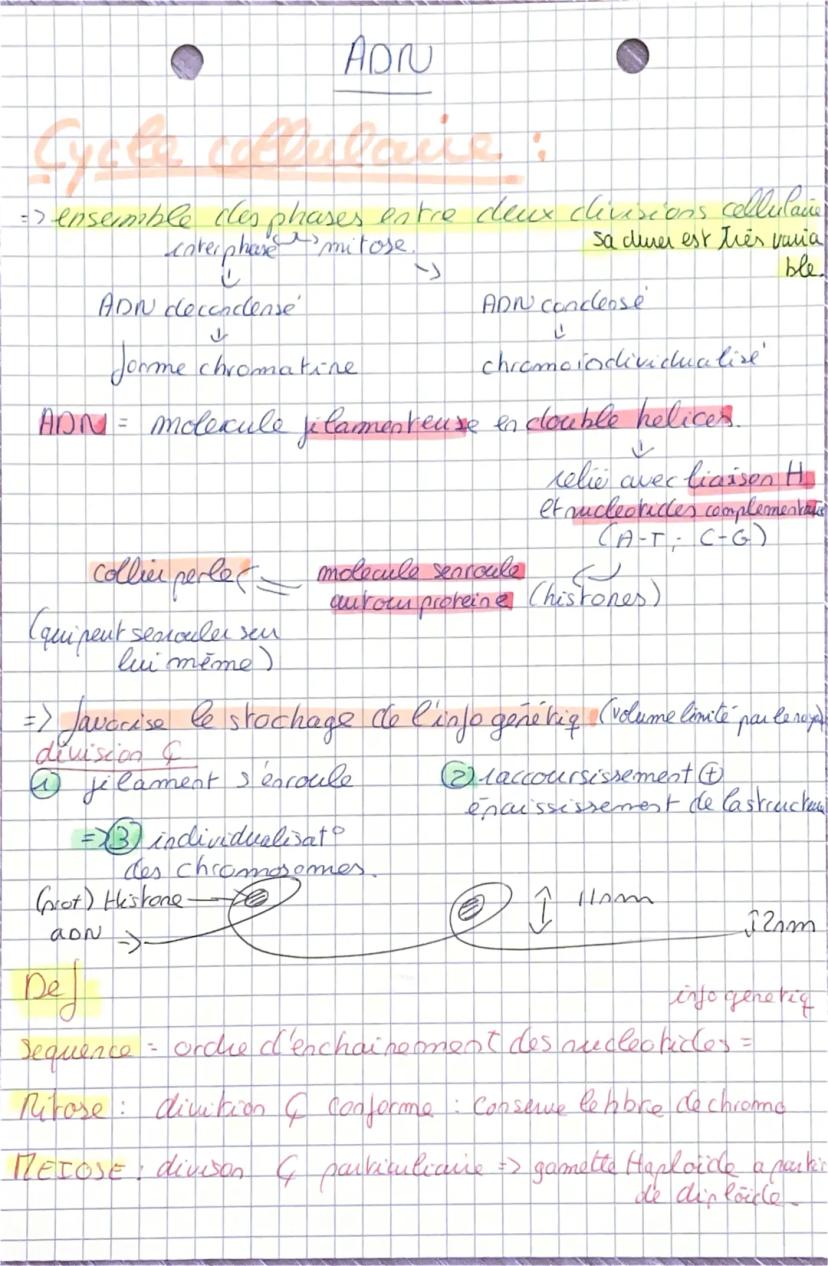 ADN
Cycle cellulaire :
=> ensemble des phases entre deux divisions cellulaire
interphase <-> mitose.
sa durer est Très varia
ble.
ADN decondensé
ADN condensé
forme chromatine
chromo individualisé
ADN = molecule filamenteuse en double helices.
relié avec liaison H
et nucleotides complementaire
(A-T ; C-G)
collier perler = molecule senroule
autour proteine (histones)
(qui peut senrouler seu
lui même)
=> favorise le stockage de l'info genétiq (volume limité par le noyau)
division Ç
① filament s'enroule
② raccoursissement ⊕
épaississement de la structure
=> ③ individualisat°
des chromosomes.
(prot) Histone
ADN ->
11nm
2nm
Def
info genetiq
sequence = ordre d'enchainement des nucleotides =
Mitose : divition Ç conforme : conserve le nbre de chromo
MEIOSE : divison Ç particuliaire => gamette Haploïde a partir
de diploïde.